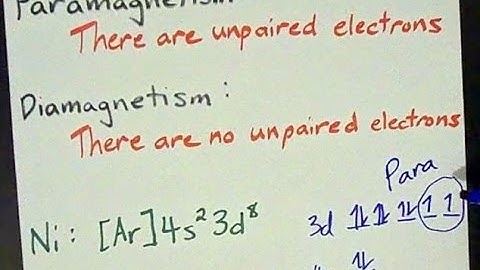 Paramagnetism:
There are unpaired electrons
Diamagnetism:
There are no unpaired electrons
Para
Ni: [Ar]4s²3d⁸
3d ⥮ ⥮ ⥮ 1 1
⥮